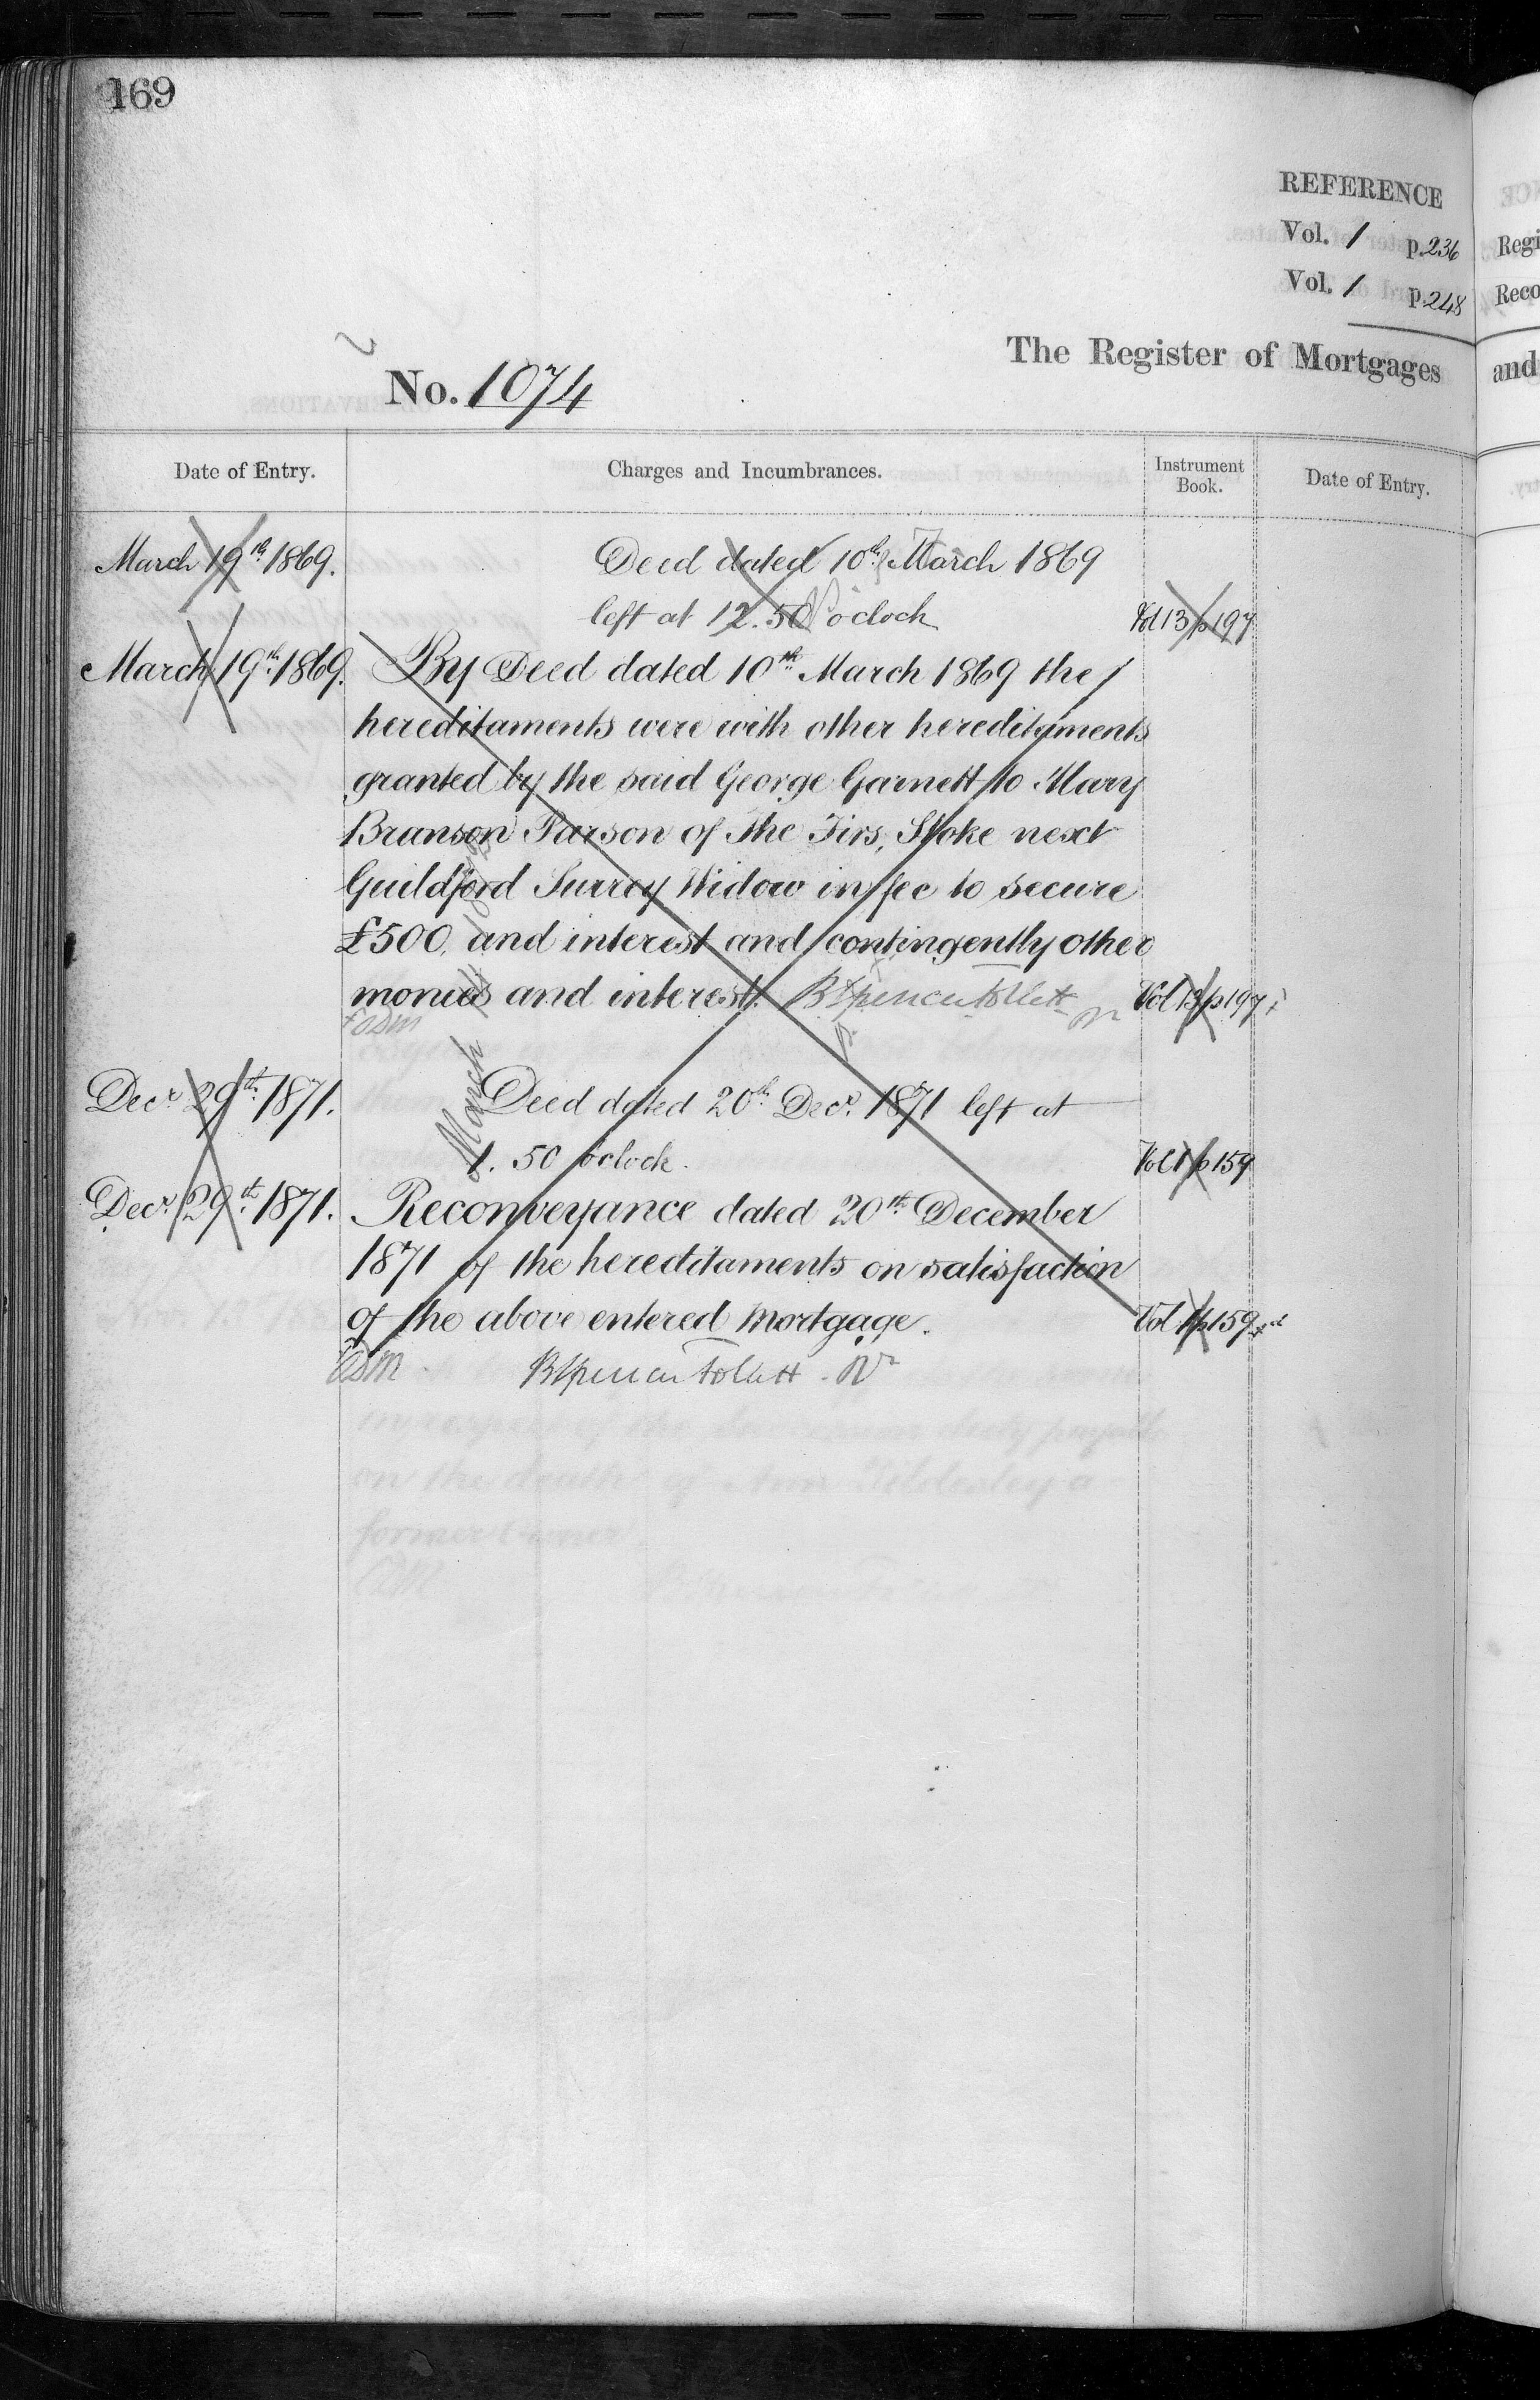 169
REFERENCE
Vol. 1 p. 236
Vol. 1 p. 248
The Register of Mortgages
No. 1074
Date of Entry. Charges and Incumbrances. Instrument Book. Date of Entry.
March 19th 1869. Deed dated 10th March 1869
left at 12.50 o'clock Vol 13 p 197
March 19th 1869. By Deed dated 10th March 1869 the
hereditaments were with other hereditaments
granted by the said George Garnett to Mary
Branson Parson of The Firs, Stoke next
Guildford Surrey Widow in fee to secure
£500. and interest and contingently other
monies and interest. Vol 13 p 197
Decr 29th 1871. Deed dated 20th Decr 1871 left at
1.50 o'clock. Vol 1 p 159
Decr 29th 1871. Reconveyance dated 20th December
1871 of the hereditaments on satisfaction
of the above entered Mortgage. Vol 1 p 159
March
Regi
Reco
and